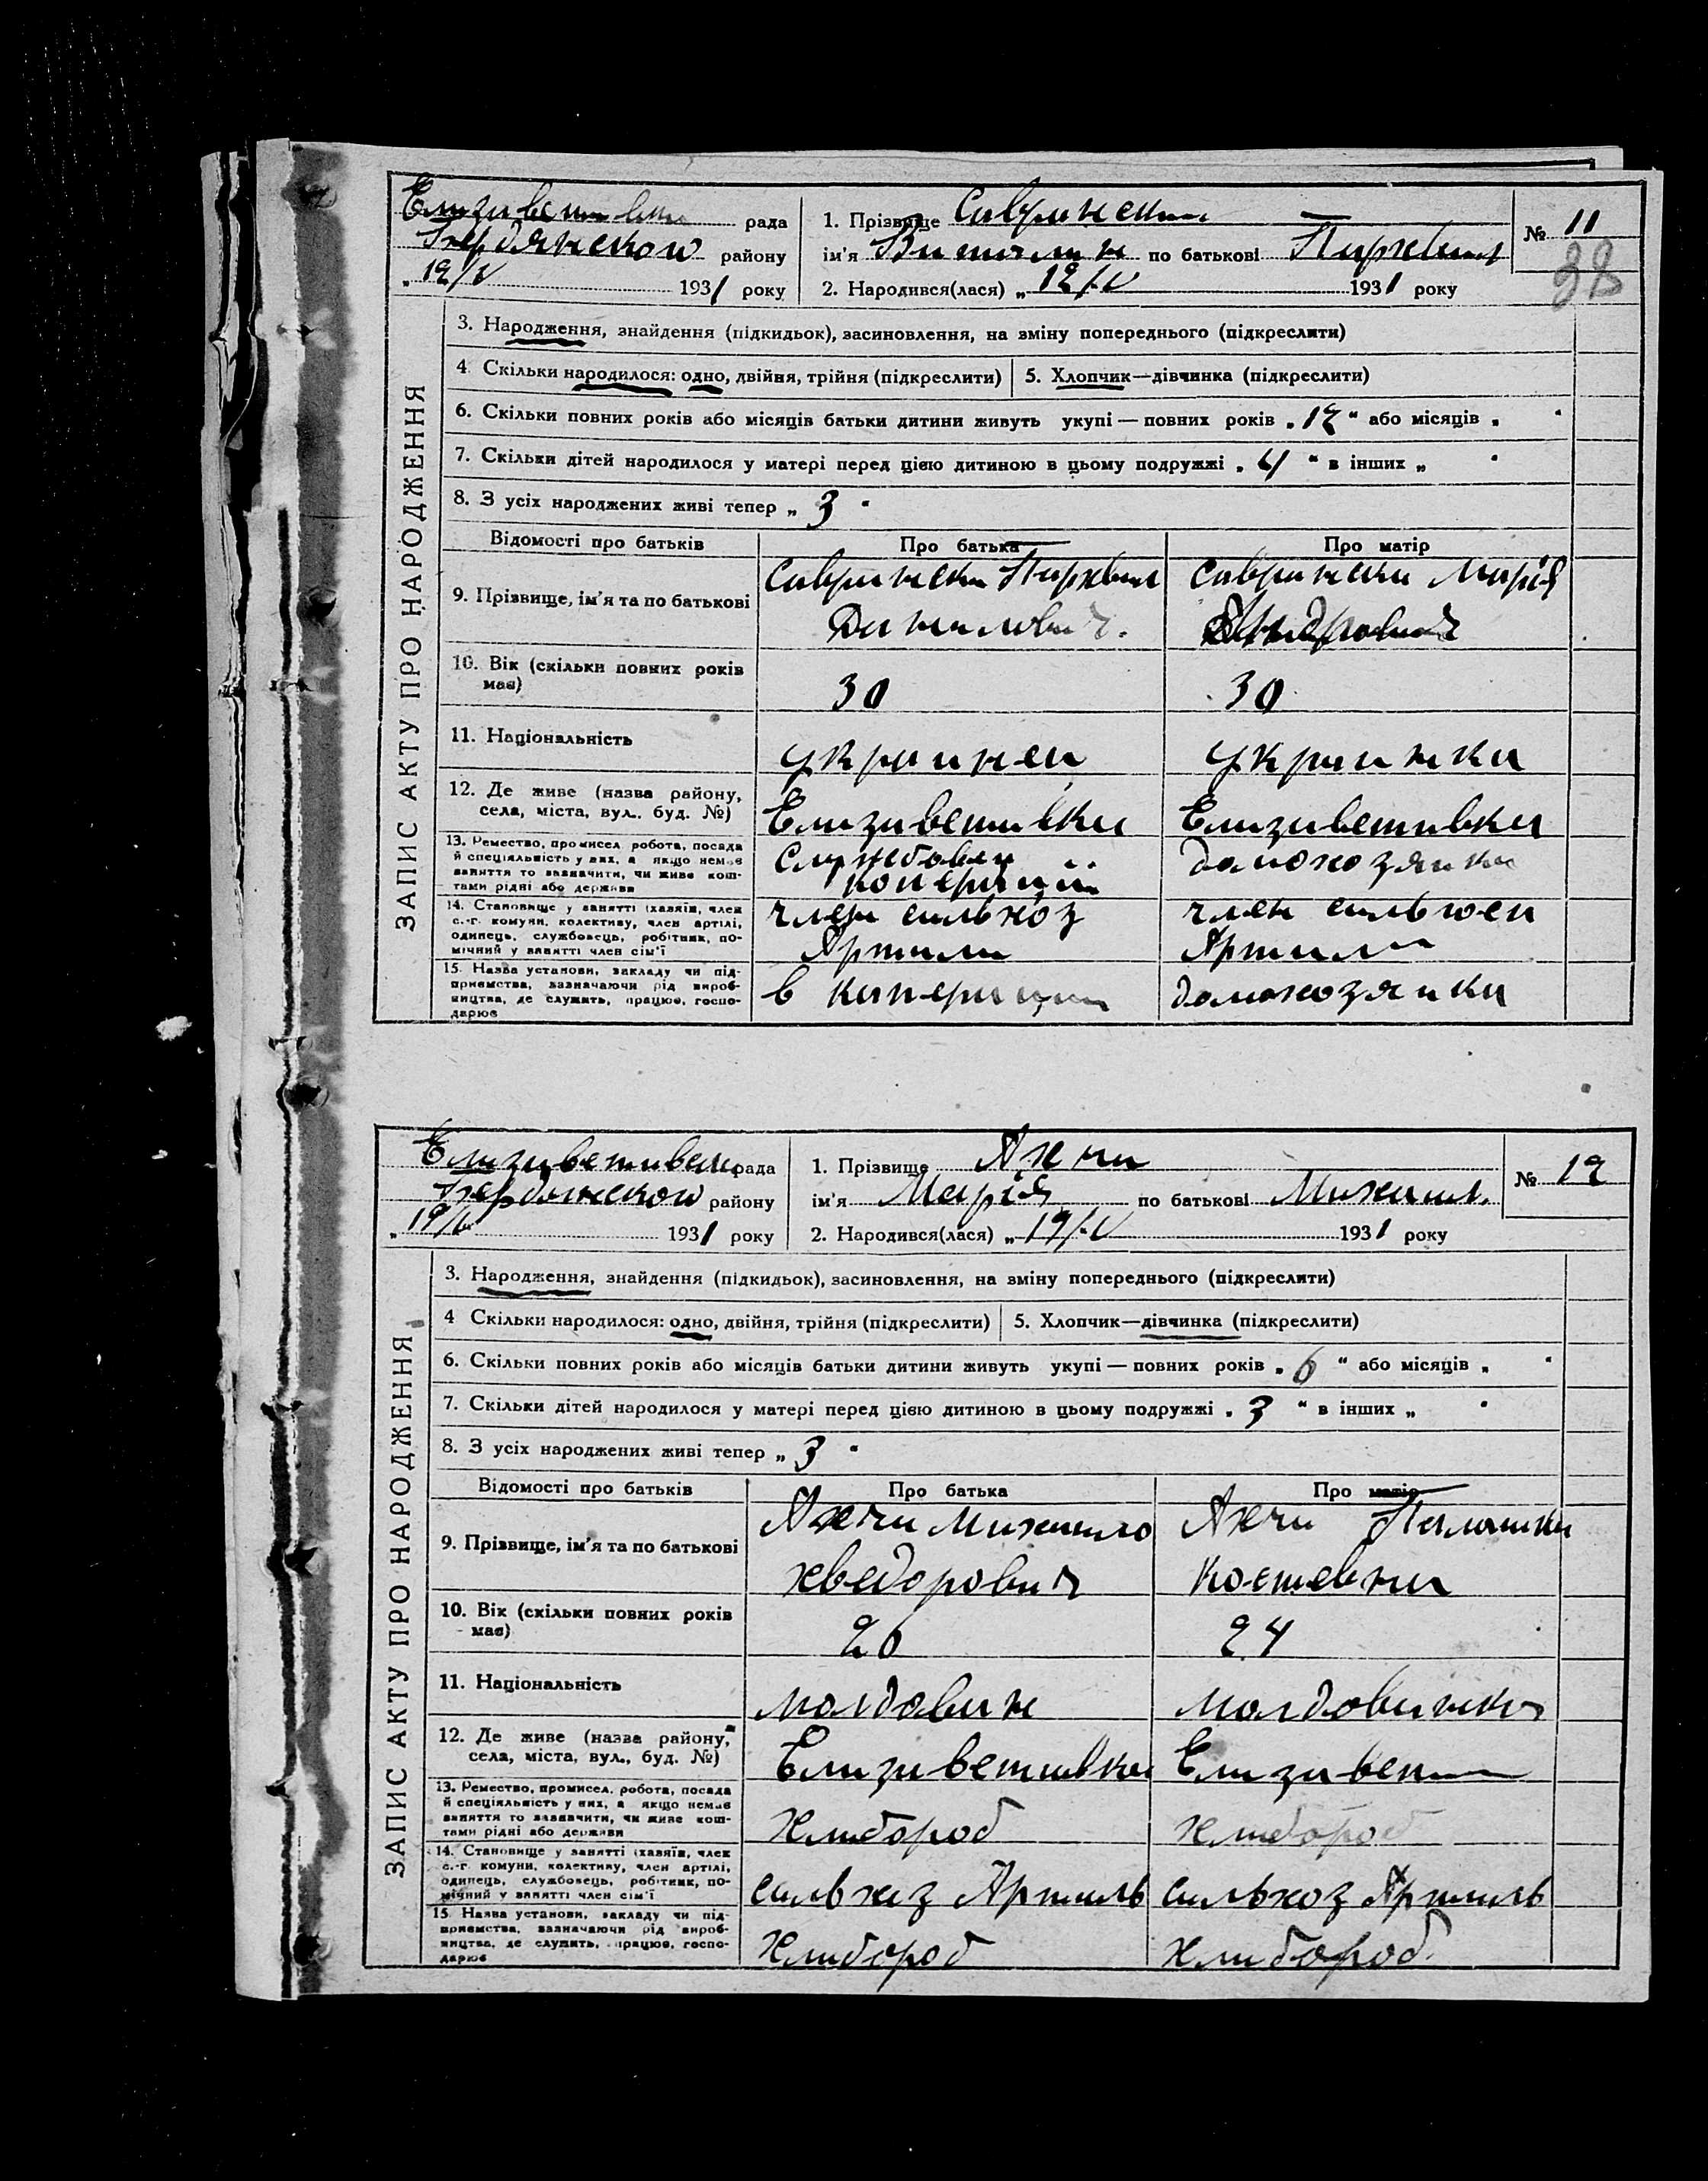 рада
району
12/V 1931 року
1. Прізвище
ім'я Виталик по батькові
2. Народився(лася) „ 12/V 1931 року
№ 11
38
ЗАПИС АКТУ ПРО НАРОДЖЕННЯ
3. Народження, знайдення (підкидьок), засиновлення, на зміну попереднього (підкреслити)
4. Скільки народилося: одно, двійня, трійня (підкреслити) 5. Хлопчик—дівчинка (підкреслити)
6. Скільки повних років або місяців батьки дитини живуть укупі — повних років „ 12 “ або місяців „
7. Скільки дітей народилося у матері перед цією дитиною в цьому подружжі „ 4 “ в інших „
8. З усіх народжених живі тепер „ 3
Відомості про батьків Про батька Про матір
9. Прізвище, ім'я та по батькові
Марія
Данилович.
10. Вік (скільки повних років має) 30 30
11. Національність украинец украинка
12. Де живе (назва району, села, міста, вул. буд. №) Елизаветивка Елизаветивка
13. Ремество, промисел робота, посада й спеціяльність у них, а якщо немає заняття то зазначити, чи живе коштами рідні або держави домохозяйка
14. Становище у занятті (хазяїн, член с.-г. комуни, колективу, член артілі, одинець, службовець, робітник, помічний у занятті член сім'ї член сильхоз Артили член Артили
15. Назва установи, закладу чи підприємства, зазначаючи рід виробництва, де служить, працює, господарює в домохозяйка
рада
району
19/V 1931 року
1. Прізвище Ахчи
ім'я Марія по батькові Михаил.
2. Народився(лася) „ 19/V 1931 року
№ 12
ЗАПИС АКТУ ПРО НАРОДЖЕННЯ
3. Народження, знайдення (підкидьок), засиновлення, на зміну попереднього (підкреслити)
4 Скільки народилося: одно, двійня, трійня (підкреслити) 5. Хлопчик—дівчинка (підкреслити)
6. Скільки повних років або місяців батьки дитини живуть укупі — повних років „ 6 “ або місяців „
7. Скільки дітей народилося у матері перед цією дитиною в цьому подружжі „ 3 “ в інших „
8. З усіх народжених живі тепер „ 3
Відомості про батьків Про батька Про матір
9. Прізвище, ім'я та по батькові
Ахчи Михаило Ахчи Палашка
хведорович
10. Вік (скільки повних років має) 26 24
11. Національність молдован молдованка
12. Де живе (назва району, села, міста, вул., буд. №) Елизаветивка
13. Ремество, промисел, робота, посада й спеціяльність у них, а якщо немає заняття то зазначити, чи живе коштами рідні або держави Хлибороб Хлибороб
14. Становище у занятті (хазяїн, член с.-г. комуни, колективу, член артілі, одинець, службовець, робітник, помічний у занятті член сім'ї сильхоз Артиль сильхоз Артиль
15. Назва установи, закладу чи підприємства, зазначаючи рід виробництва, де служить, працює, господарює Хлибороб Хлибороб